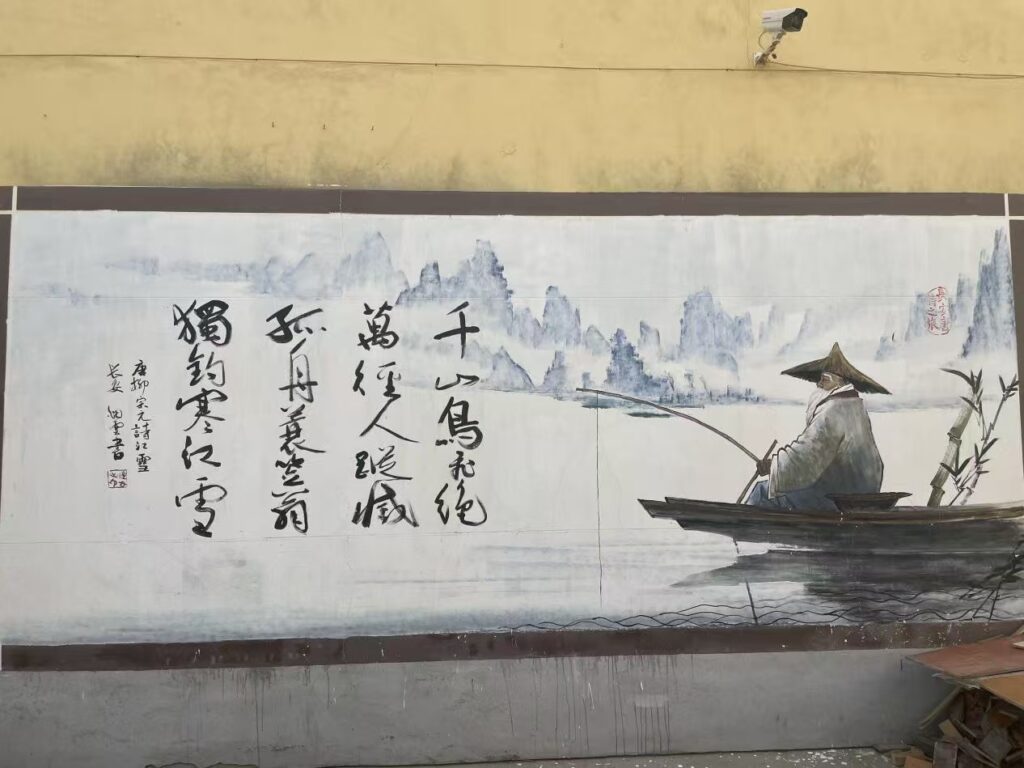 千山鳥飛絕
萬徑人蹤滅
孤舟蓑笠翁
獨釣寒江雪
唐柳宗元詩江雪
长安 雲書